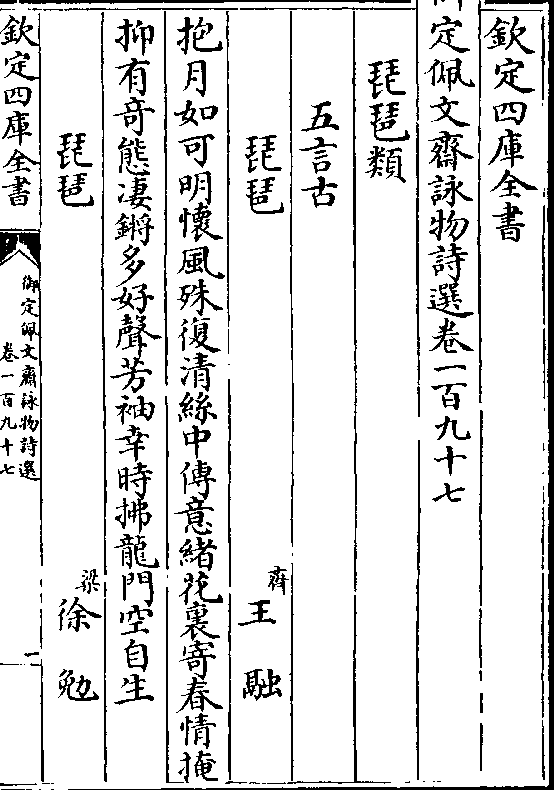 欽定四庫全書
御定佩文齋詠物詩選卷一百九十七
琵琶類
五言古
琵琶　齊王融
抱月如可明懷風殊復清絲中傳意緒花裏寄春情掩
抑有竒態凄鏘多好聲芳袖幸時拂龍門空自生
琵琶　梁徐勉
欽定四庫全書
御定佩文齋詠物詩選
卷一百九十七
一